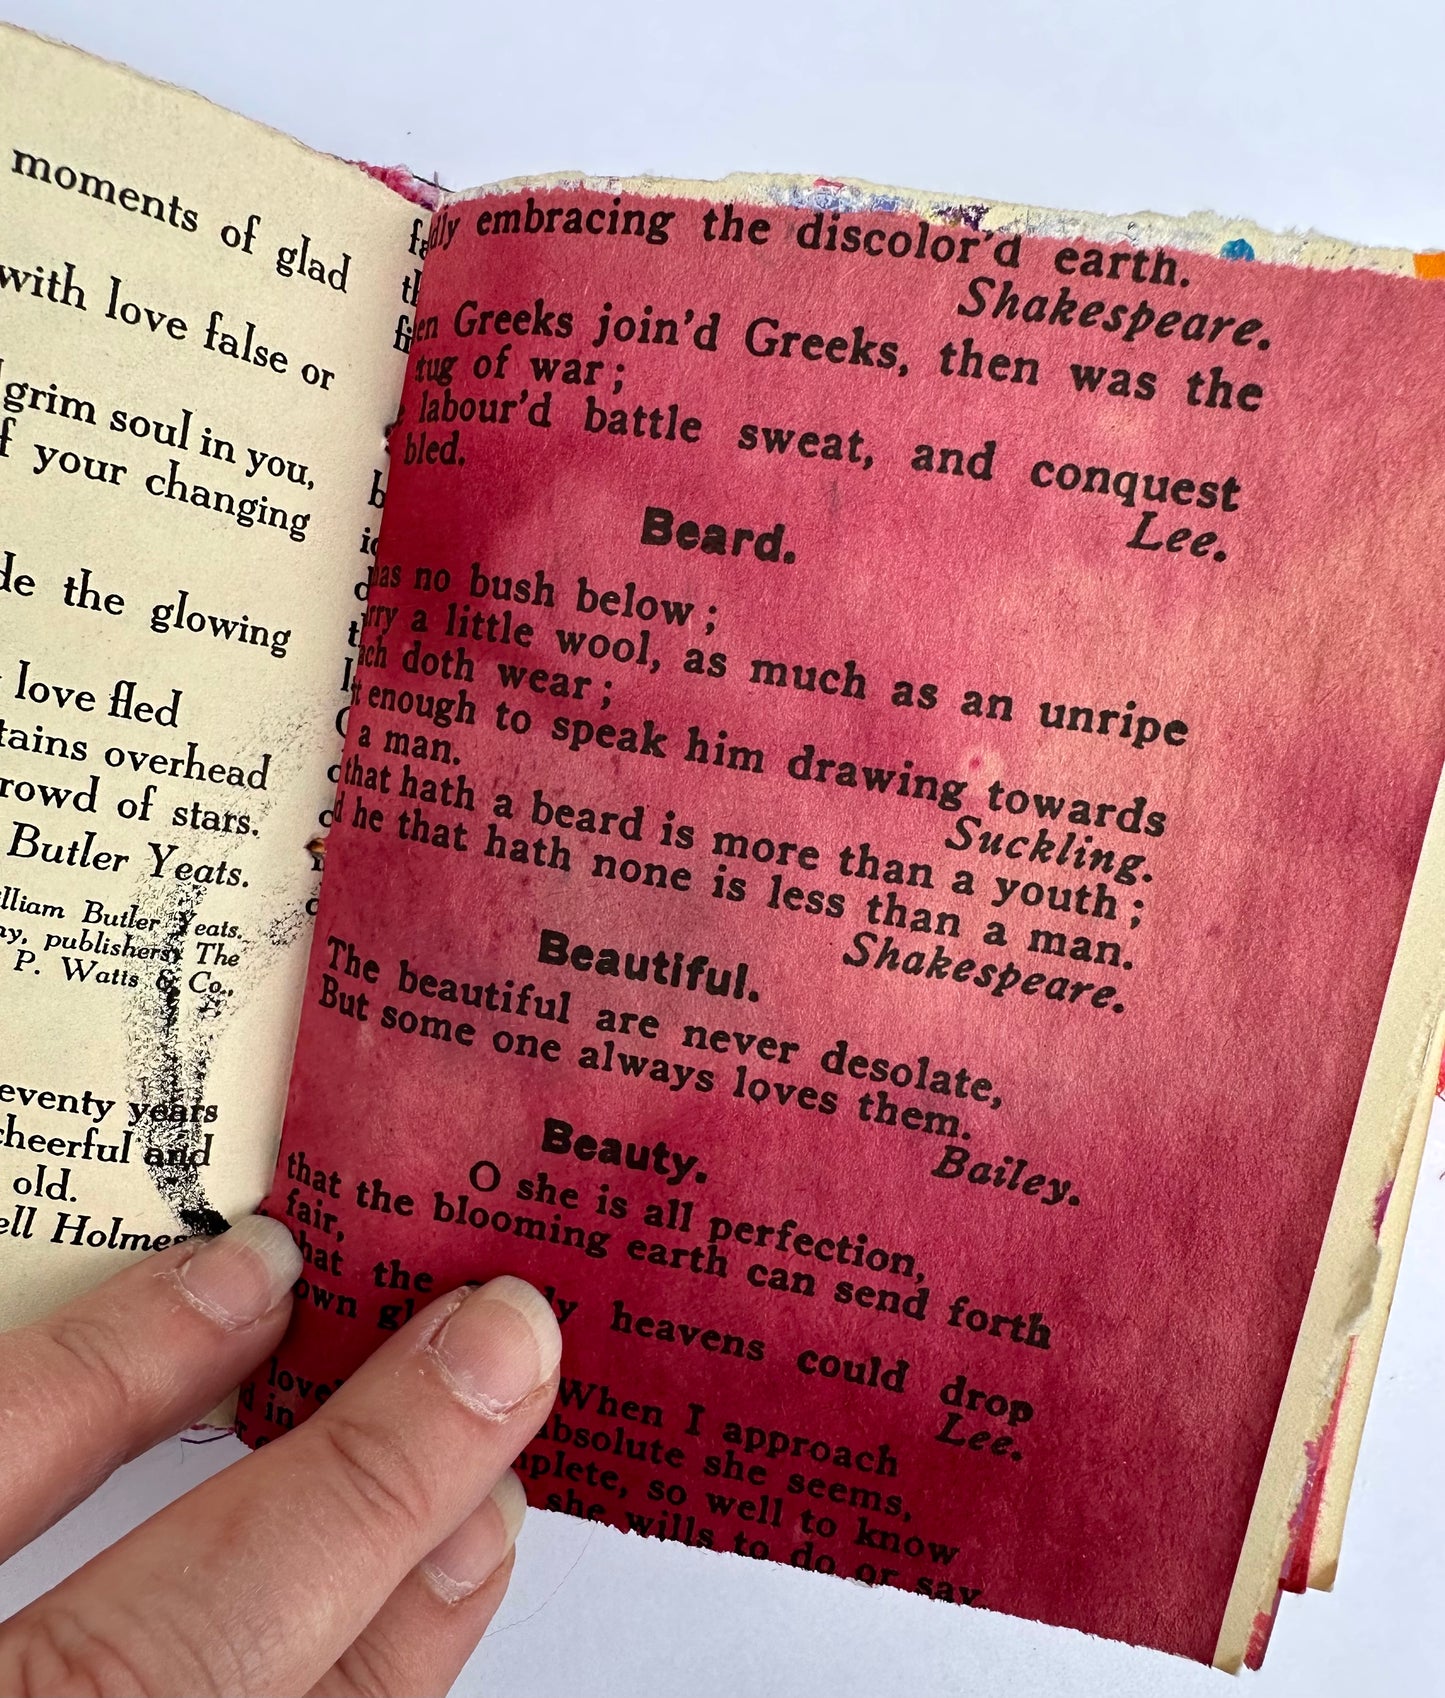 moments of glad
with love false or
grim soul in you,
your changing
the glowing
love fled
overhead
of stars.
Butler Yeats.
Butler Yeats.
publishers. The
P. Watts & Co.,
years
cheerful and
old.
Holmes
embracing the discolor'd earth.
Shakespeare.
Greeks join'd Greeks, then was the
tug of war;
labour'd battle sweat, and conquest
bled.
Lee.
Beard.
no bush below;
a little wool, as much as an unripe
doth wear;
enough to speak him drawing towards
a man.
Suckling.
that hath a beard is more than a youth;
he that hath none is less than a man.
Shakespeare.
Beautiful.
The beautiful are never desolate,
But some one always loves them.
Bailey.
Beauty.
O she is all perfection,
that the blooming earth can send forth
fair,
the heavens could drop
own
Lee.
When I approach
in absolute she seems,
so well to know
she wills to do or say